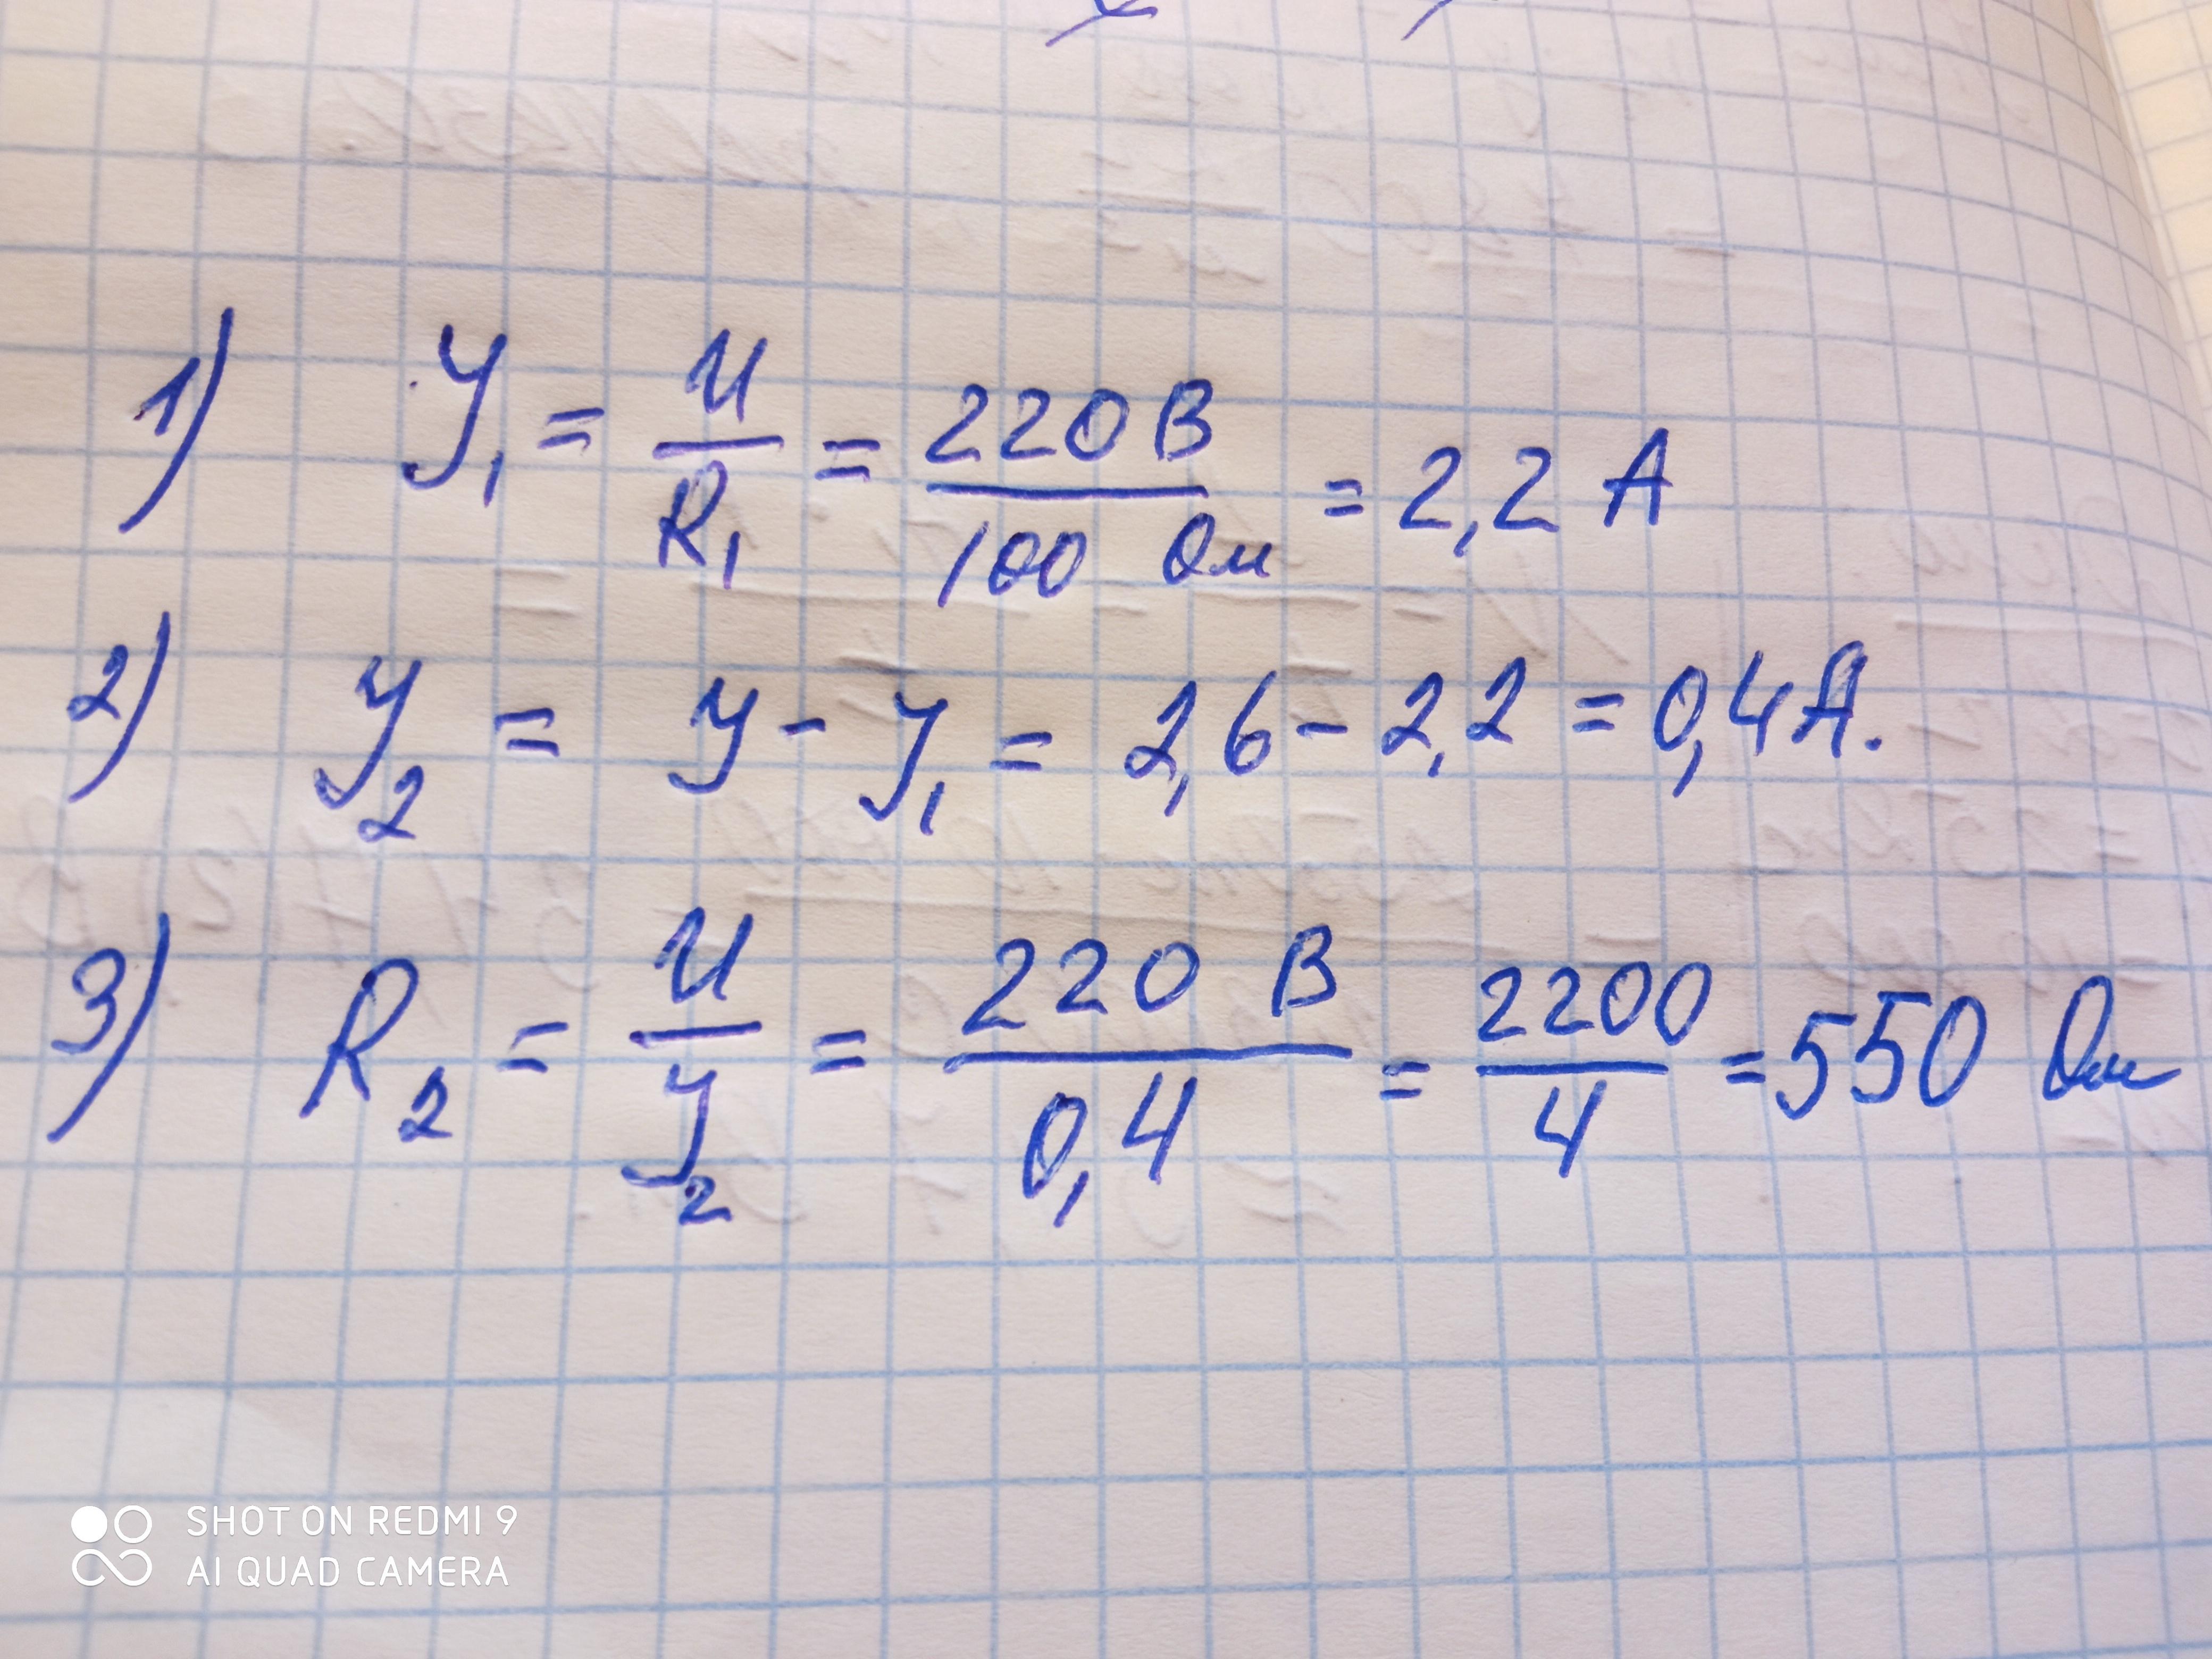 1) У₁ = U/R₁ = 220 В/100 Ом = 2,2 А
2) У₂ = У - У₁ = 2,6 - 2,2 = 0,4 А.
3) R₂ = U/У₂ = 220 В/0,4 = 2200/4 = 550 Ом
SHOT ON REDMI 9
AI QUAD CAMERA